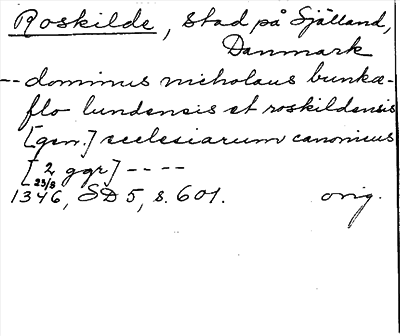 Roskilde, stad på Själland,
Danmark
-- dominus nicholaus bunkæ-
flo lundensis et roskildensis
[gen.] ecclesiarum canonicus
[2 ggr] ----
23/8
1346, SD 5, s. 601. orig.